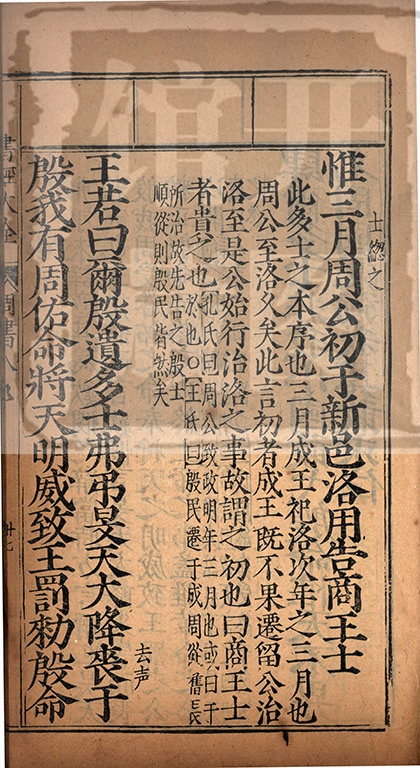 惟三月周公初于新邑洛用告商王士
士緫之
此多士之本序也三月成王祀洛次年之三月也
周公至洛久矣此言初者成王既不果遷留公治
洛至是公始行治洛之事故謂之初也曰商王士
者貴之也
孔氏曰周公致政明年三月也或曰于
於也○王氏曰殷民遷于成周從舊長
所治故先告之殷士
順從則殷民皆然矣
王若曰爾殷遺多士弗弔旻天大降喪于
去声
殷我有周佑命將天明威致王罰勑殷命
書經大全